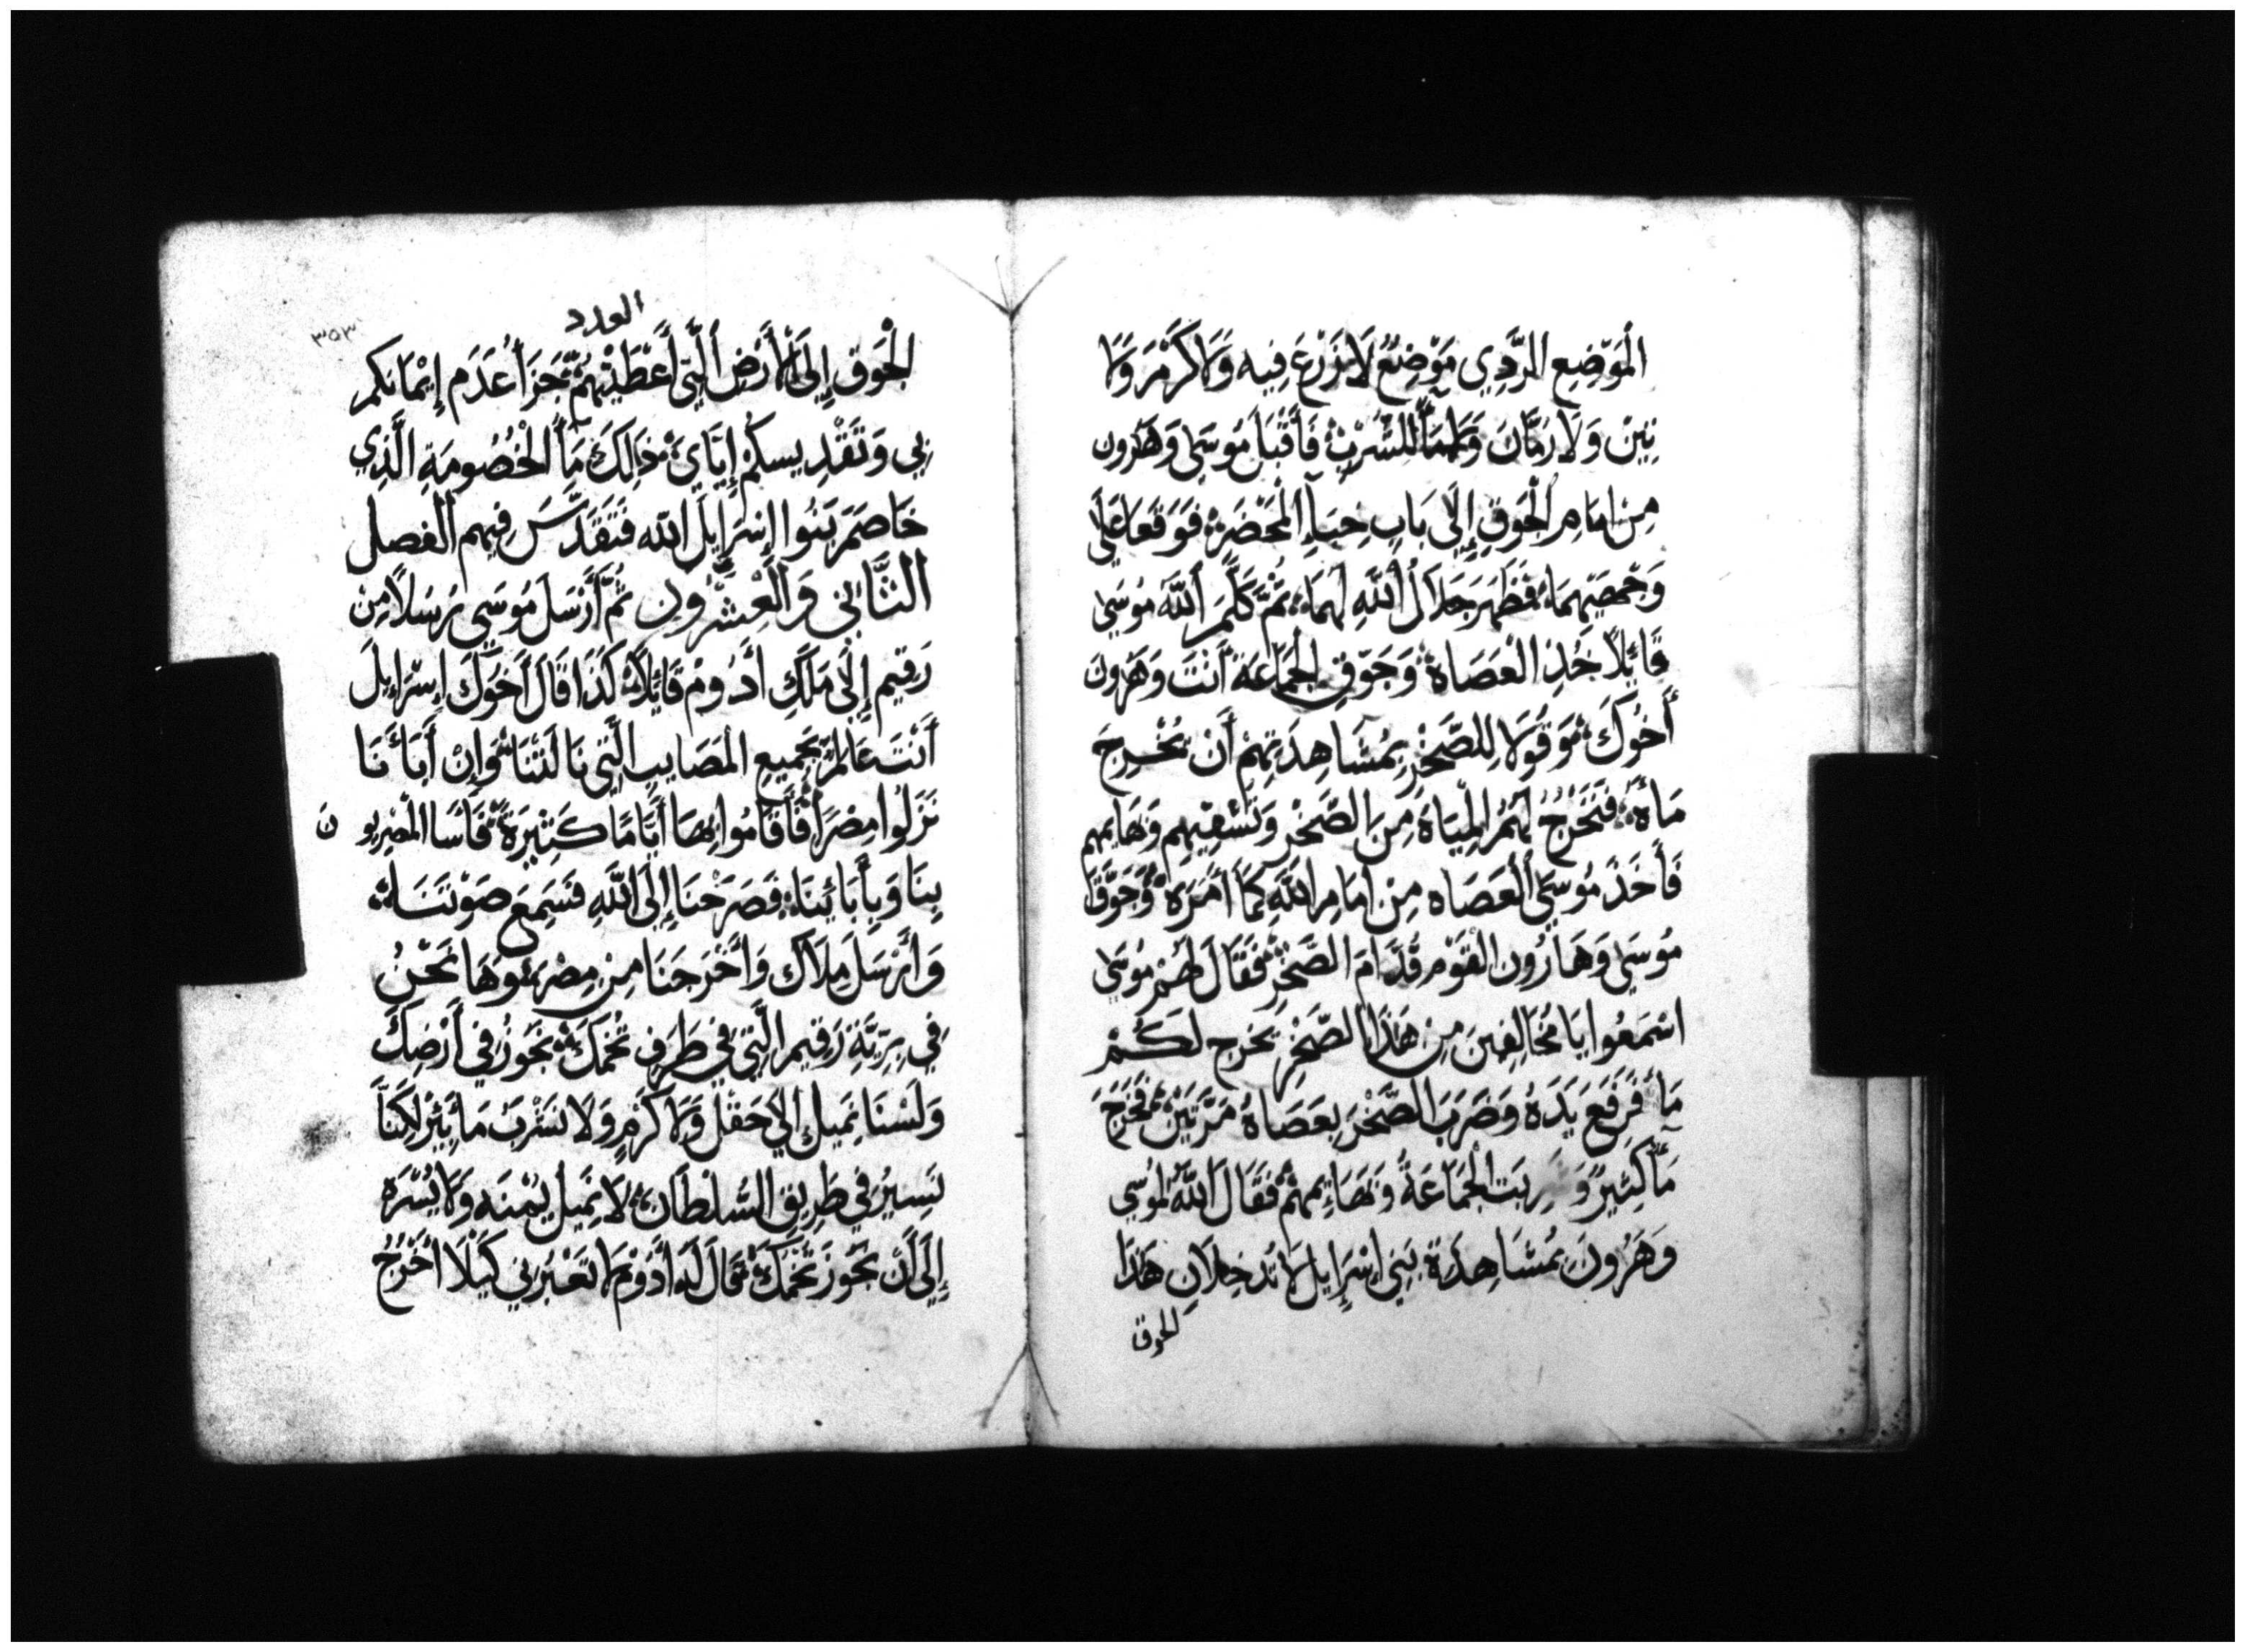 الْمَوْضِعِ الرَّدِي مَوْضِعُ لَا نَزْرَعَ فِيه وَلَا كَرْمَ وَلَا
تِينْ وَلَا رَمَّانَ وَلَا مَأً لِلشُّرْبْ فَأَقْبَلَ مُوسَى وَهَرُون
مِنْ امَامِ الْجَوقِ إِلَى بَابِ خِبَاءِ الْمَحْضَرَةِ فَوَقَعَا عَلَى
وَجْهَيْهِمَا فَظَهَرَ جَلَالُ اللَّهِ لَهُمَا ثُمَّ كَلَّمَ اللَّهُ مُوسَى
قَائِلًا خُذِ الْعَصَاةَ وَجَوِّقِ الْجَمَاعَةَ أَنْتَ وَهَرُونَ
أَخُوكَ وَقُولَا لِلصَّخْرِ بِمُشَاهِدَتِهِمْ أَنْ يُخْرِجَ
مَاءَهُ فَتَخْرُجُ لَهُمُ الْمِيَاهُ مِنَ الصَّخْرِ وَتَسْقِيهِم وَبَهَايِمهم
فَأَخَذَ مُوسَى الْعَصَاه مِنْ أَمَامِ اللَّهِ كَمَا أَمَرَهُ وَجَوَّقَا
مُوسَى وَهَارُون الْقَوْمَ قُدَّامَ الصَّخْرِ فَقَالَ لَهُمْ مُوسَى
اسْمَعُوا يَا مُخَالِفِينَ مِنْ هَذَا الصَّخْرِ نخرج لَكُمْ
مَاءً فَرَفَعَ يَدَهُ وَضَرَبَ الصَّخْرَ بِعَصَاهُ مَرَّتَيْنِ فَخَرَجَ
مَاءً كَثِيرً الْجَمَاعَةُ وَبَهَائِمهمْ فَقَالَ اللَّهُ لمُوسَى
وَهَرُونَ بِمُشَاهِدَةِ بَنِي إِسْرَايِلَ لَا تُدخِلَانِ هَذَا
الجوق
العدد
٣٥٣
الْجَوق إِلَى الْأَرْضِ الَّتِي أَعْطَيْتُهُمْ جَزَاءً عَدَم إِيْمَانكم
بِي وَتَقْدِيسكُمْ إِيَّايَ ذَلِكَ مَأُ الْخُصُومَةِ الَّذِي
خَاصَمَ بَنُوا إِسْرَايِلَ اللَّه فَتَقَدَّسَ فِيهِم الفصل
الثَّانِي وَالْعِشْرُون ثُمَّ أَرْسَلَ مُوسَى رُسُلًا مِنْ
رَقِيم إِلَى مَلَكِ أَدُومْ قَائِلًا كَذَا قَالَ أَخُوكَ إِسْرَايِلَ
أَنْتَ عَالِمٌ بِجَمِيعِ الْمَصَايِبِ الَّتِي نَالَتْنَا وَإِنْ أَبَاءَنَا
نَزَلُوا مِصْرَ فَأَقَامُوا بِهَا أَيَّامًا كَثِيرَةً فَأَسَا الْمصْرِيون
بِنَا وَبِأَبَائِنَا فَصَرَخْنَا إِلَى اللَّهِ فَسَمِعَ صَوْتَنَا
وَأَرْسَلَ مَلَاك وَأَخْرَجَنَا مِنْ مِصْر وَهَا نَحْنُ
فِي بَرِيَّةِ رَقِيم الَّتِي فِي طَرَفِ تُخْمكَ نَجُوزُ فِي أَرْضِكَ
وَلَسْنَا نَمِيل إِلَى حَقْل وَلَا كَرْمٍ وَلَا نَشْرَبْ مَاء بِئْر لَكِنَّا
نَسِيرُ فِي طَرِيقِ السُّلْطَان لَا نَمِيل يُمْنَه وَلَا يُسْرَه
إِلَى أَنْ نَجُوزَ تُخْمَكَ فَقَالَ لَه أَدُومْ لَا تَعْبُرْنِي كَيْلَا أَخْرُجُ